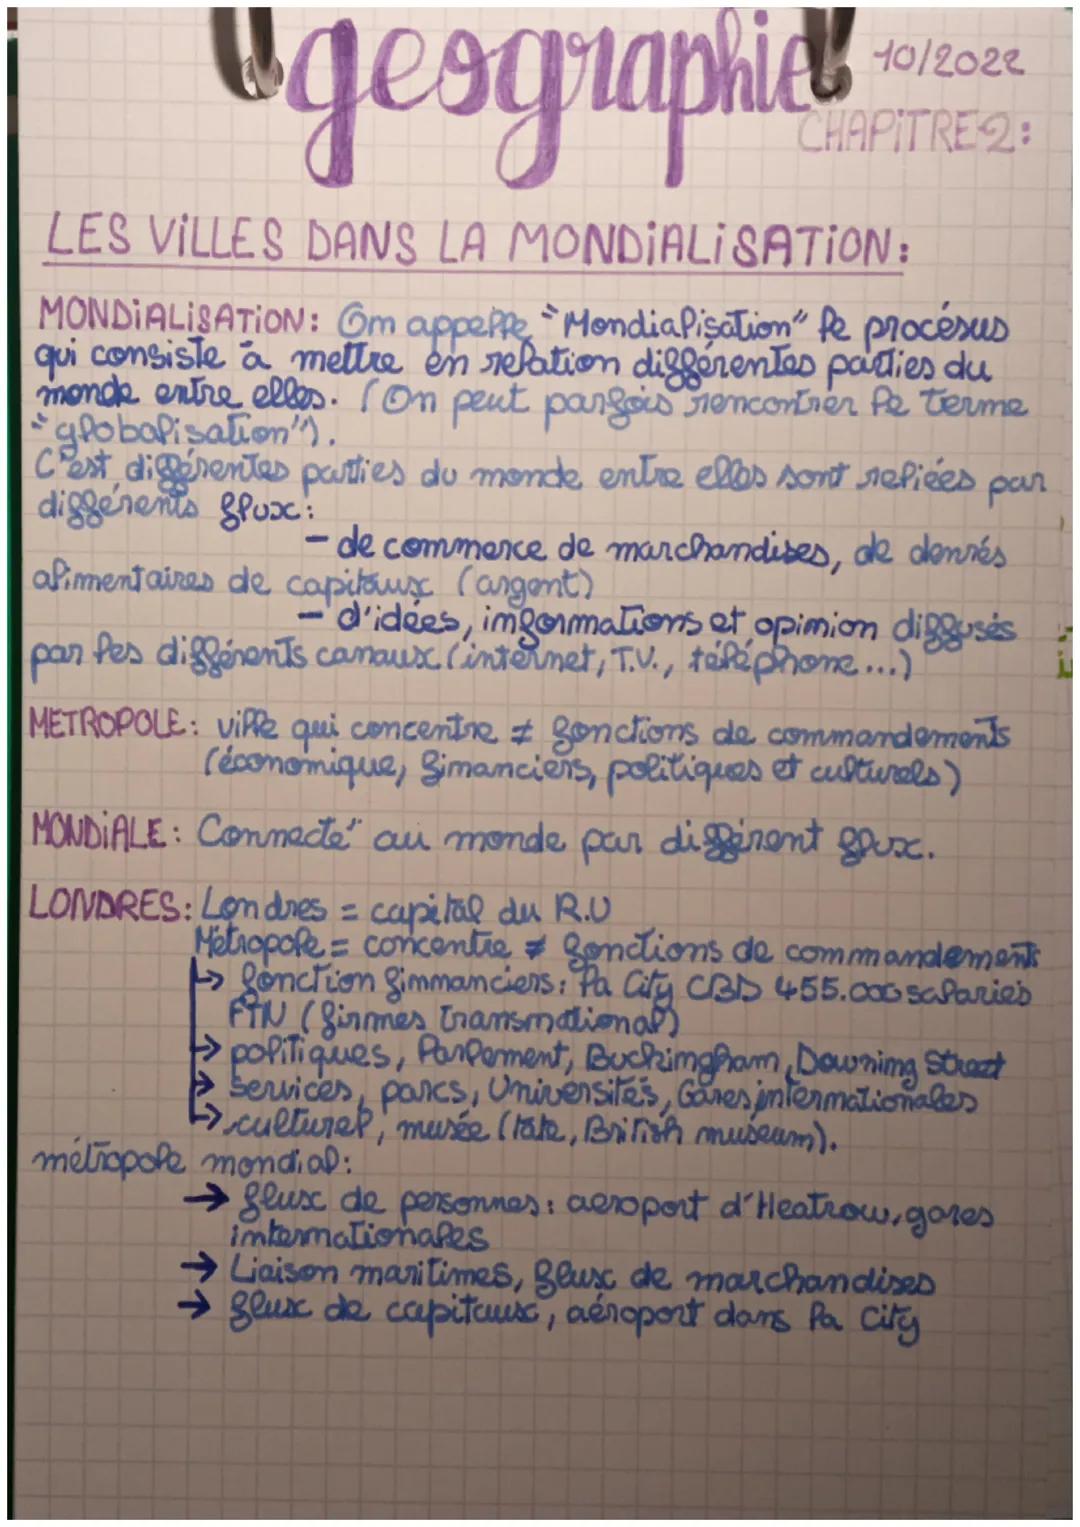 géographie
10/2022
CHAPITRE 2:
LES VILLES DANS LA MONDIALISATION:
MONDIALISATION: On appelle "Mondialisation" le procésus
qui consiste à mettre en relation différentes parties du
monde entre elles. (On peut parfois rencontrer le terme
"globalisation").
C'est différentes parties du monde entre elles sont reliées par
différents flux:
- de commerce de marchandises, de denrés
alimentaires de capitaux (argent)
- d'idées, informations et opinion diffusés
par les différents canaux (internet, T.V., téléphone...)
METROPOLE: ville qui concentre ≠ fonctions de commandements
(économique, financiers, politiques et culturels)
MONDIALE: Connecté au monde par différent flux.
LONDRES: Londres = capital du R.U
Métropole = concentre ≠ fonctions de commandements
↳ fonction finnanciers: la City CBD 455.000 salariés
FTN (firmes transnational)
→ politiques, Parlement, Buckingham, Downing Street
→ services, parcs, Universités, Gares internationales
↳ culturel, musée (tate, British muséum).
métropole mondial:
→ flux de personnes: aeroport d'Heatrow, gares
internationales
→ Liaison maritimes, flux de marchandises
→ flux de capitaux, aéroport dans la City